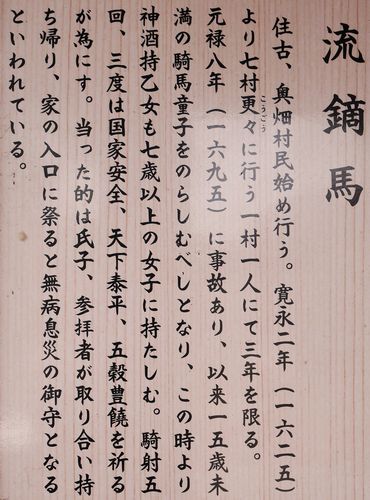 流鏑馬
住古、奥畑村民始め行う。寛永二年（一六二五）
より七村更々に行う一村一人にて三年を限る。
こうごう
元禄八年（一六九五）に事故あり、以来一五歳未
満の騎馬童子をのらしむべしとなり、この時より
神酒持乙女も七歳以上の女子に持たしむ。騎射五
回、三度は国家安全、天下泰平、五穀豊饒を祈る
が為にす。当った的は氏子、参拝者が取り合い持
ち帰り、家の入口に祭ると無病息災の御守となる
といわれている。